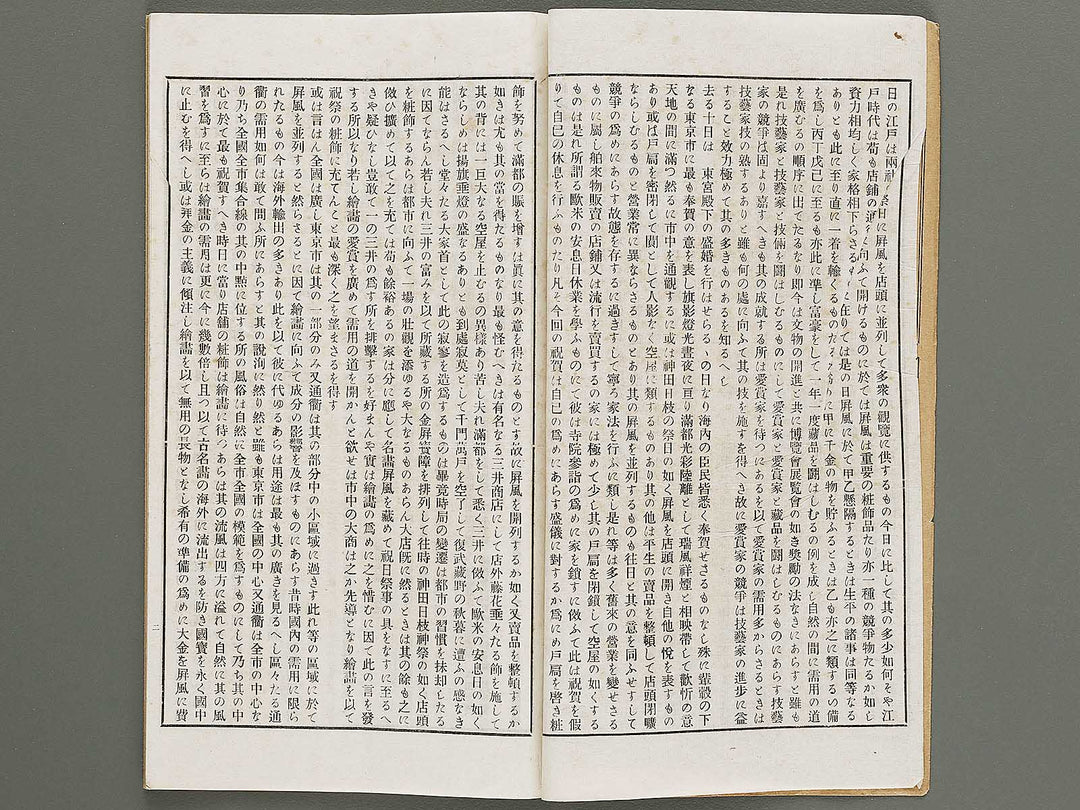 日の江戸は兩社祭日に屏風を店頭に並列して多衆の觀覽に供するもの今日に比して其の多少如何そや江
戸時代は苟も店鋪の通りに向ふて開けるものに於ては屏風は重要の粧飾品たり亦一種の競爭物たるか如し
資力相均しく家格相下らさる に在りては是の日屏風に於て甲乙懸隔するときは生平の諸事は同等なる
ありとも此に至り直に一着を輸くるものた に甲に千金の物を貯ふるときは乙も亦之に類するの備
を爲し丙丁戊己に至るも亦此に準し富豪をして一年一度藏品を鬪はしむるの例を成し自然の間に需用の道
を廣むるの順序に出てたるなり即今は文物の開進と共に博覽會展覽會の如き獎勵の法なきにあらすと雖も
是れ技藝家と技藝家と技倆を鬪はしむるものにして愛賞家と愛賞家と藏品を鬪はしむるものにあらす技藝
家の競爭は固より嘉すへきも其の成就する所は愛賞家を待つにあるを以て愛賞家の需用多からさるときは
技藝家技の熟するありと雖も何の處に向ふて其の技を施すを得へき故に愛賞家の競爭は技藝家の進步に益
すること效力極めて其の多きものあるを知るへし
去る十日は　東宮殿下の盛婚を行はせらるゝの日なり海內の臣民皆悉く奉賀せさるものなし殊に輦轂の下
なる東京市に最も奉賀の意を表し旗影燈光晝夜に亘り滿都光彩陸離として瑞風祥煙と相映帶して歡忻の意
天地の間に滿つ然るに市中を通觀するに或は神田日枝の祭日の如く屏風を店頭に開き他の悅を表するもの
あり或は戸扃を密閉して闃として人影なく空屋に類するものあり其の他は平生の賣品を整頓して店頭閒曠
ならしむるものと營業常に異ならさるものとあり其の屏風を並列するものも往日と其の意を同ふせすして
競爭の爲めにあらす故態を存するに過きすして寧ろ家法を行ふに類し是れ等は多く舊來の營業を變せさる
ものに屬し舶來物販賣の店鋪又は流行を賣買するの家には極めて少し其の戸扃を閉鎖して空屋の如くする
ものは是れ所謂る歐米の安息日休業を學ふものにて彼は寺院參詣の爲めに家を鎖すに倣ふて此は祝賀を假
りて自已の休息を行ふものたり凡そ今回の祝賀は自已の爲めにあらす盛儀に對するか爲にめ戸扃を啓き粧
飾を努めて滿都の賑を增すは眞に其の意を得たるものとす故に屏風を開列するか如く又賣品を整頓するか
如きは尤も其の當を得たるものなり最も怪むへきは有名なる三井商店にして店外藤花垂々たる飾を施して
其の背には一巨大なる空屋を止むるの異樣あり苦し夫れ滿都をして悉く三井に倣ふて歐米の安息日の如く
ならしめは揚旗垂燈の盛なるありとも到處寂寞として千門萬戸を空了して復武藏野の秋暮に遭ふの感なき
能はさるへし堂々たる大家首として此の寂寥を造爲するものは畢竟時局の變遷は都市の習慣を抹却したる
に因てならん若し夫れ三井の富みを以て所藏する所の金屏寶障を排列して往時の神田日枝神祭の如く店頭
を粧飾するあらは都市に向ふて一場の壯觀を添ゆるや大なるものあらん大店旣に然るときは其の餘も之に
倣ひ擴めて以て之を充ては苟も餘裕あるの家は分に應して名畵屏風を藏めて祝日祭事の具をなすに至るへ
きや疑ひなし豈敢て一の三井の爲す所を排擊するを好まんや實は繪畵の爲めに之を惜むに因て此の言を發
する所以なり若し繪畵の愛賞を廣めて需用の道を開かんと欲せは市中の大商は之か先導となり繪畵を以て
祝祭の粧飾に充てんこと最も深く之を望まさるを得す
或は言はん全國は廣し東京市は其の一部分のみ又通衢は其の部分中の小區域に過きす此れ等の區域に於て
屏風を並列すると然らさるとに因て繪畵に向ふて成分の影響を及ほすものにあらす昔時國內の需用に限ら
れたるもの今は海外輸出の多きあり此を以て彼に代ゆるあらは用途は最も其の廣きを見るへし區々たる通
衢の需用如何は敢て間ふ所にあらすと其の說洵に然り然と雖も東京市は全國の中心又通衢は全市の中心な
り乃ち全國全市集合線の其の中點に位する所の風俗は自然に全市全國の模範を爲すものにして乃ち其の中
心に於て最も祝賀すへき時日に當り店舖の粧飾は繪畵に待つあらは其の流風は四方に溢れて自然に其の風
習を爲すに至らは繪畵の需用は更に今に幾數倍し且つ以て古名畵の海外に流出するを防き國寶を永く國中
に止むを得へし或は拜金の主義に傾注し繪畵を以て無用の長物となし希有の準備の爲めに大金を屏風に費
二